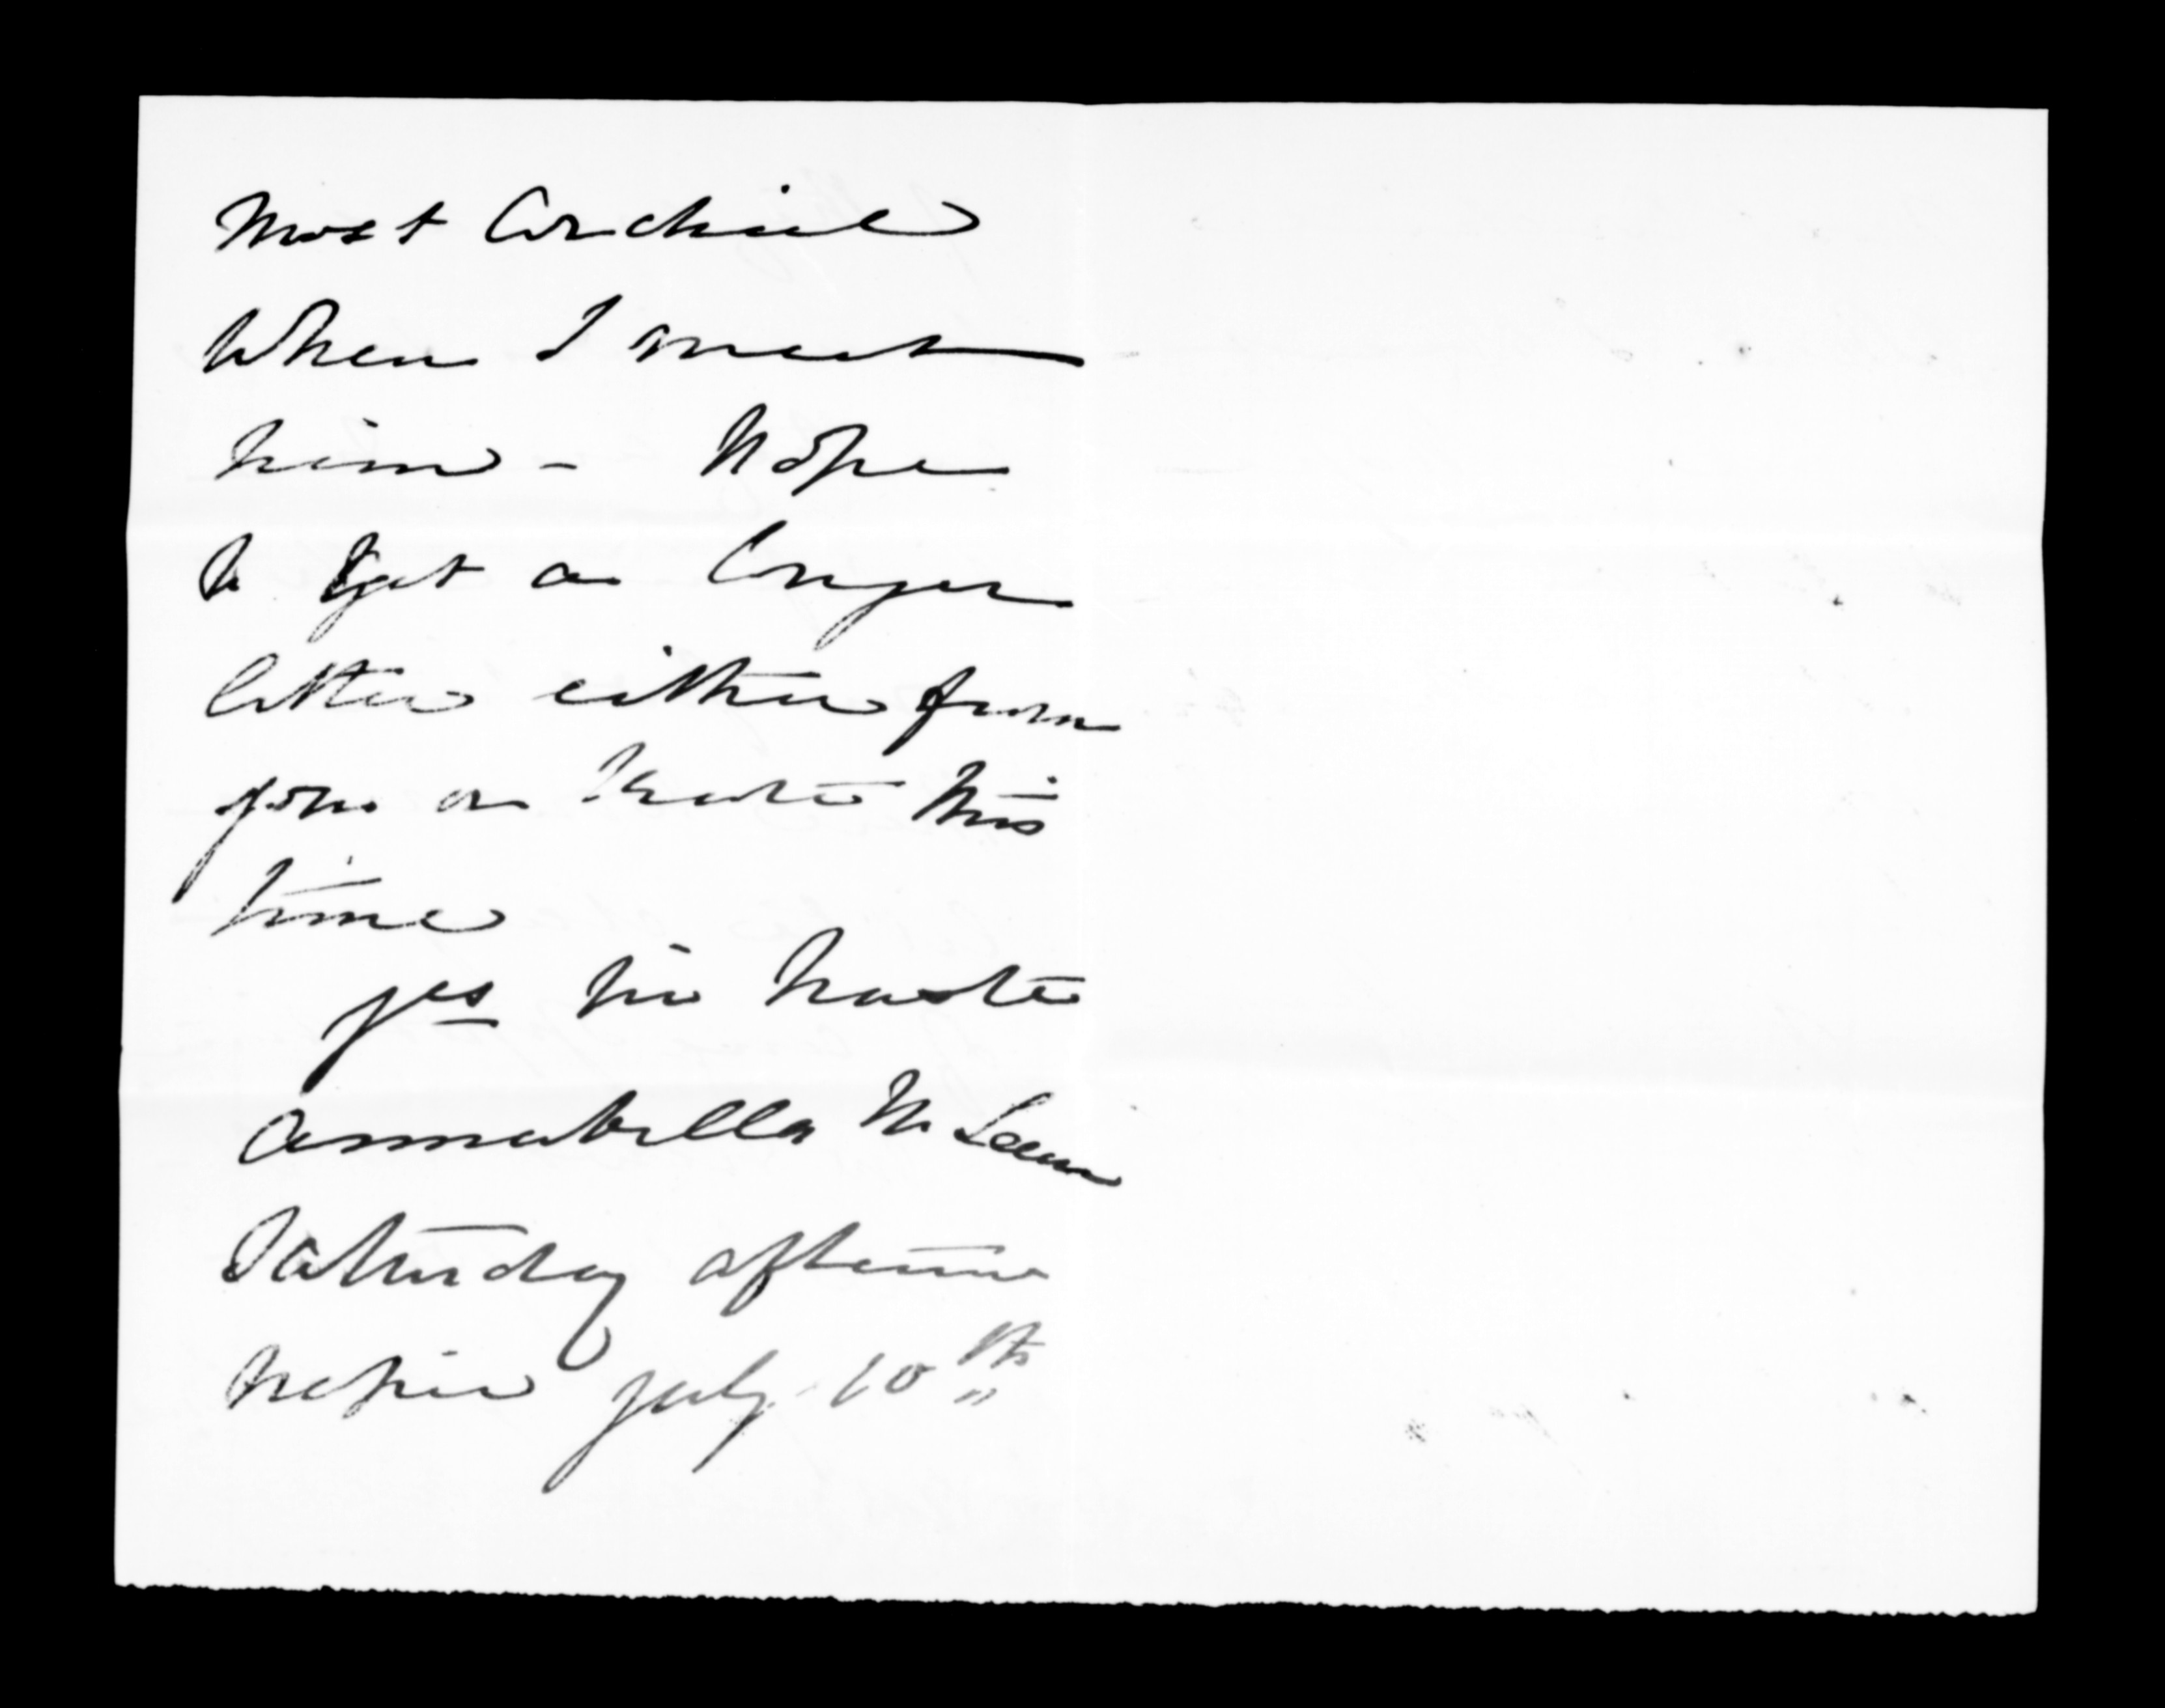 Most Cordial
When I meet
him - Hope
to get a longer
letter either from
you or Kate this
time
yrs in haste
Annabella McLean
Saturday afternoon
Napier July 10th